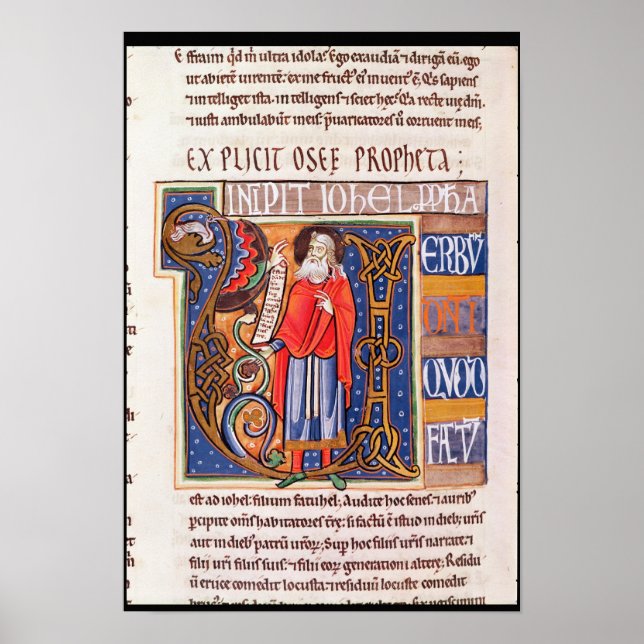 Effraim q̄d m̄ ultra idola. Ego exaudiā ⁊ dirigā eū. ego
ut abietē uirentē. ex me fruct᷒ ei᷒ inuent᷒ ē. Q͛s sapiens
⁊ intelliget ista. intelligens ⁊ sciet hęc. Q͛a recte uię dn̄i.
⁊ iusti ambulabūt in eis. p̄uaricatores ū corruent in eis.
EXPLICIT OSEE PROPHETA;
INCIPIT IOHEL PPHA
V ERBŪ
DNI
QVOD
FACTŪ
est ad iohel: filium fatuhel; Audite hoc senes. ⁊ aurib᷒
percipite om̄s habitatores t̄rę: si factū ē istud in dieb᷒ ur̄is
aut in dieb᷒ patrū ur̄or᷒; Sup hoc filiis uris narrate. ⁊
filii ur̄i filiis suis. ⁊ filii eor᷒ generationi alterę; Residu
ū eruce comedit locusta. ⁊ residuū locuste comedit